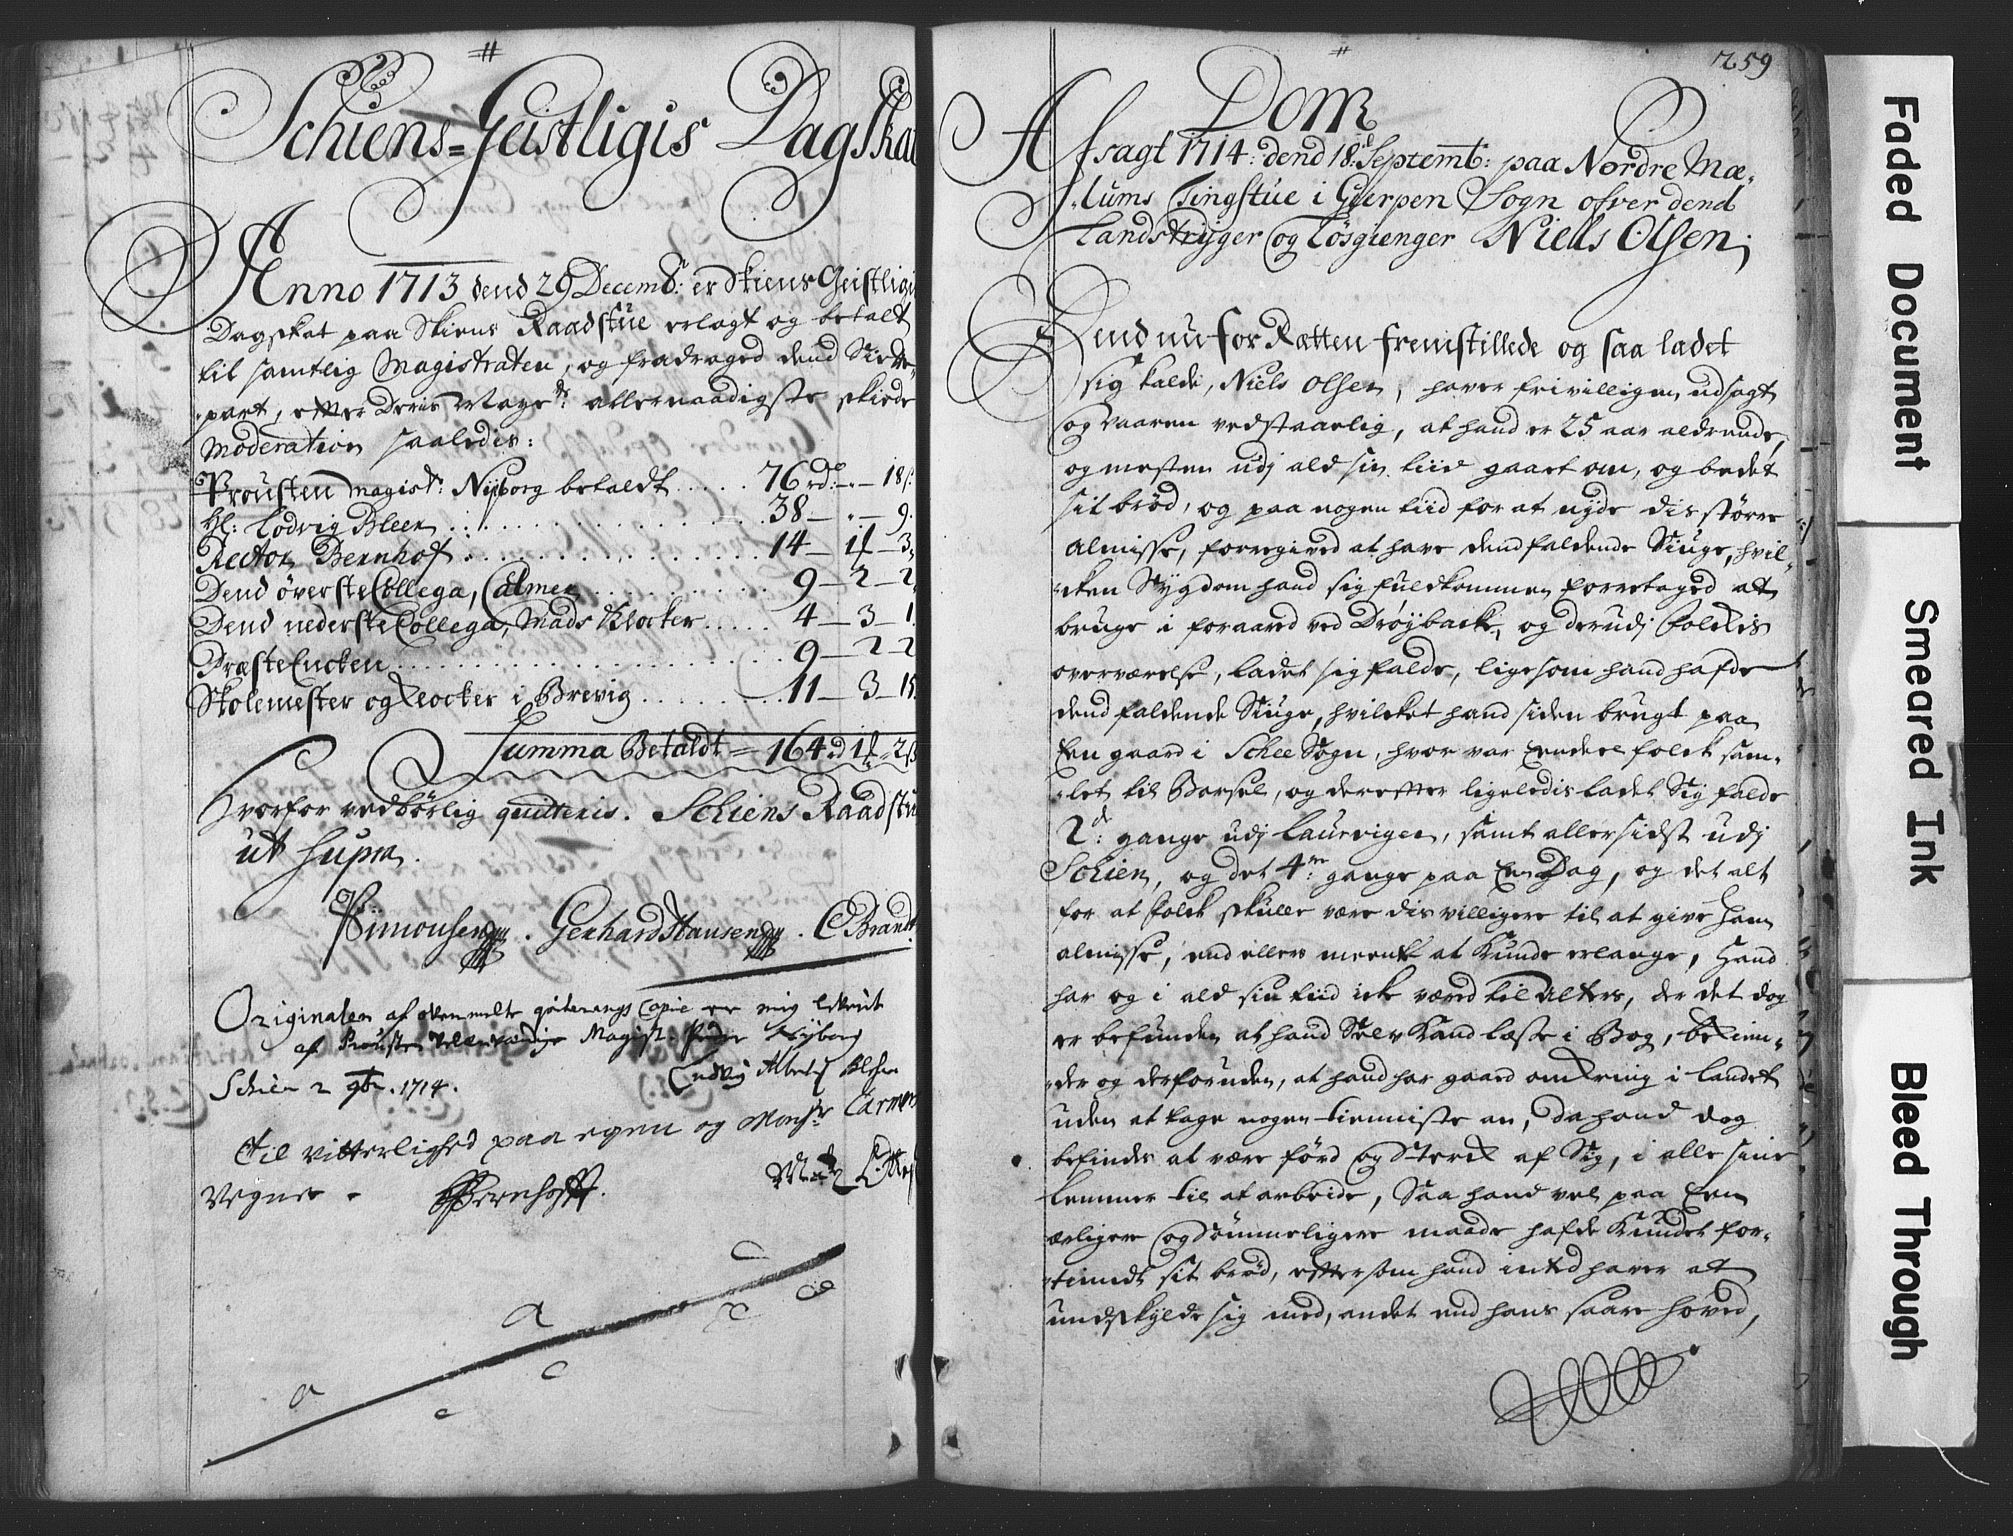 Schiens-Geistligis Dagskat
Anno 1713 dend 29 Decemb: er Skiens Geistligis
Dagskat paa Skiens Raadstue erlagt og betalt
til samtlig Magistraten, og fradraged dend Siette-
part, efter Deris Maye: allernaadigste skiede
Moderation saaledis:
Prousten Magist: Nyborg betaldt ..... 76 rd: — " — 18 s:
Hl: Lodvig Bleer ........ 38 — " — 9.
Rector Bernhoft ........ 14 — 1 — 3
Dend överste Collega, Calmer ........ 9 — 2 — 2
Dend nederste Collega, Mads Klocker ..... 4 — 3 — 1
Præste Encken ........ 9 — 2 — 2
Skolemester og Klocker i Brevig ........ 11 — 3 — 15
Summa Betaldt = 164 d 1 — 2 s
Hvorfor vedbörlig qvitteris. Schiens Raadstue
ut supra.
Simonsen. Gerhard Hansen. C Brandt
Originalen af ovenmelte qviterings Copie er mig leverit
af Prousten Velærværdige Magist: Peder Nyborg
Schien 2 9br. 1714. Ludvig Alberts Bleer
Til vitterlighed paa egen og Monsr Carmers
Vegne. Bernhofft. Mads
259
Dom
Afsagt 1714: dend 18: Septemb: paa Nordre Mæ-
lums Tingstue i Gierpen Sogn ofver dend
Landstryger og Løsgienger Niels Olsen;
Dend nu for Rætten fremstillede og saa ladet
sig kalde, Niels Olsen, haver frivilligen udsagt
og vaaren vedstaarlig, at hand er 25 aar aldrende,
og mesten udj ald sin tiid gaaet om, og bedet
sit bröd, og paa nogen tiid for at nyde dis större
almisse, forregived at have dend faldende Siuge, hvil-
cken Sygdom hand sig fuldkommen forretaged at
bruge i foraared ved Dröyback, og derudj folckis
overværelse, ladet sig falde, ligesom hand hafde
dend faldende Siuge, hvilcket hand siden brugt paa
Een gaard i Schee Sogn, hvor var Eendeel folck sam-
let til Barsel, og derefter ligeledis ladet Sig falde
2de: gange udj Laurvigen, samt allersidst udj
Schien, og det 4re: gange paa Een Dag, og det alt
for at folck skulle være dis villigere til at give ham
almisse, end ellers meente at kunde erlange, Hand
har og i ald sin tiid ick været til Alters, der det dog
er befunden at hand Selv kand læse i Bog, bekien-
der og derforuden, at hand har gaaed omkring i Landet
uden at tage nogen tienniste an, da hand dog
befindes at være förd og sterck af Sig, i alle sine
lemmer til at arbeide, Saa hand vel paa Een
ærligere og sömmeligere maade hafde kundet for-
tiendt sit bröd, eftersom hand inted haver at
undskylde sig med, andet end hans saare hoved,
Faded Document
Smeared Ink
Bleed Through